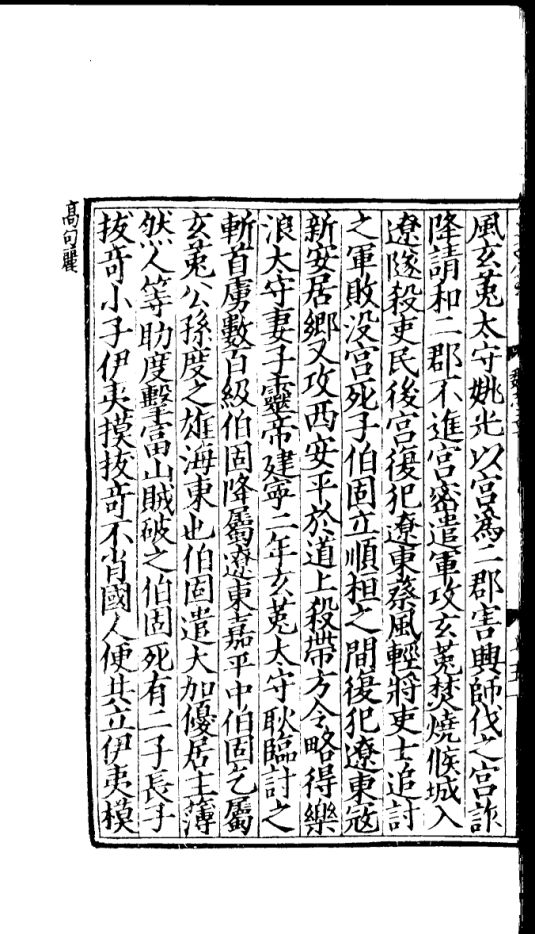 風玄菟太守姚光以宮爲二郡害興師伐之宮詐
降請和二郡不進宮密遣軍攻玄菟焚燒候城入
遼隧殺吏民後宮復犯遼東蔡風輕將吏士追討
之軍敗没宮死子伯固立順桓之間復犯遼東寇
新安居鄉又攻西安平於道上殺帶方令略得樂
浪太守妻子靈帝建寧二年玄菟太守耿臨討之
斬首虜數百級伯固降屬遼東嘉平中伯固乞屬
玄菟公孫度之雄海東也伯固遣大加優居主簿
然人等助度擊富山賊破之伯固死有二子長子
拔奇小子伊夷摸拔奇不肖國人便共立伊夷模
高句麗